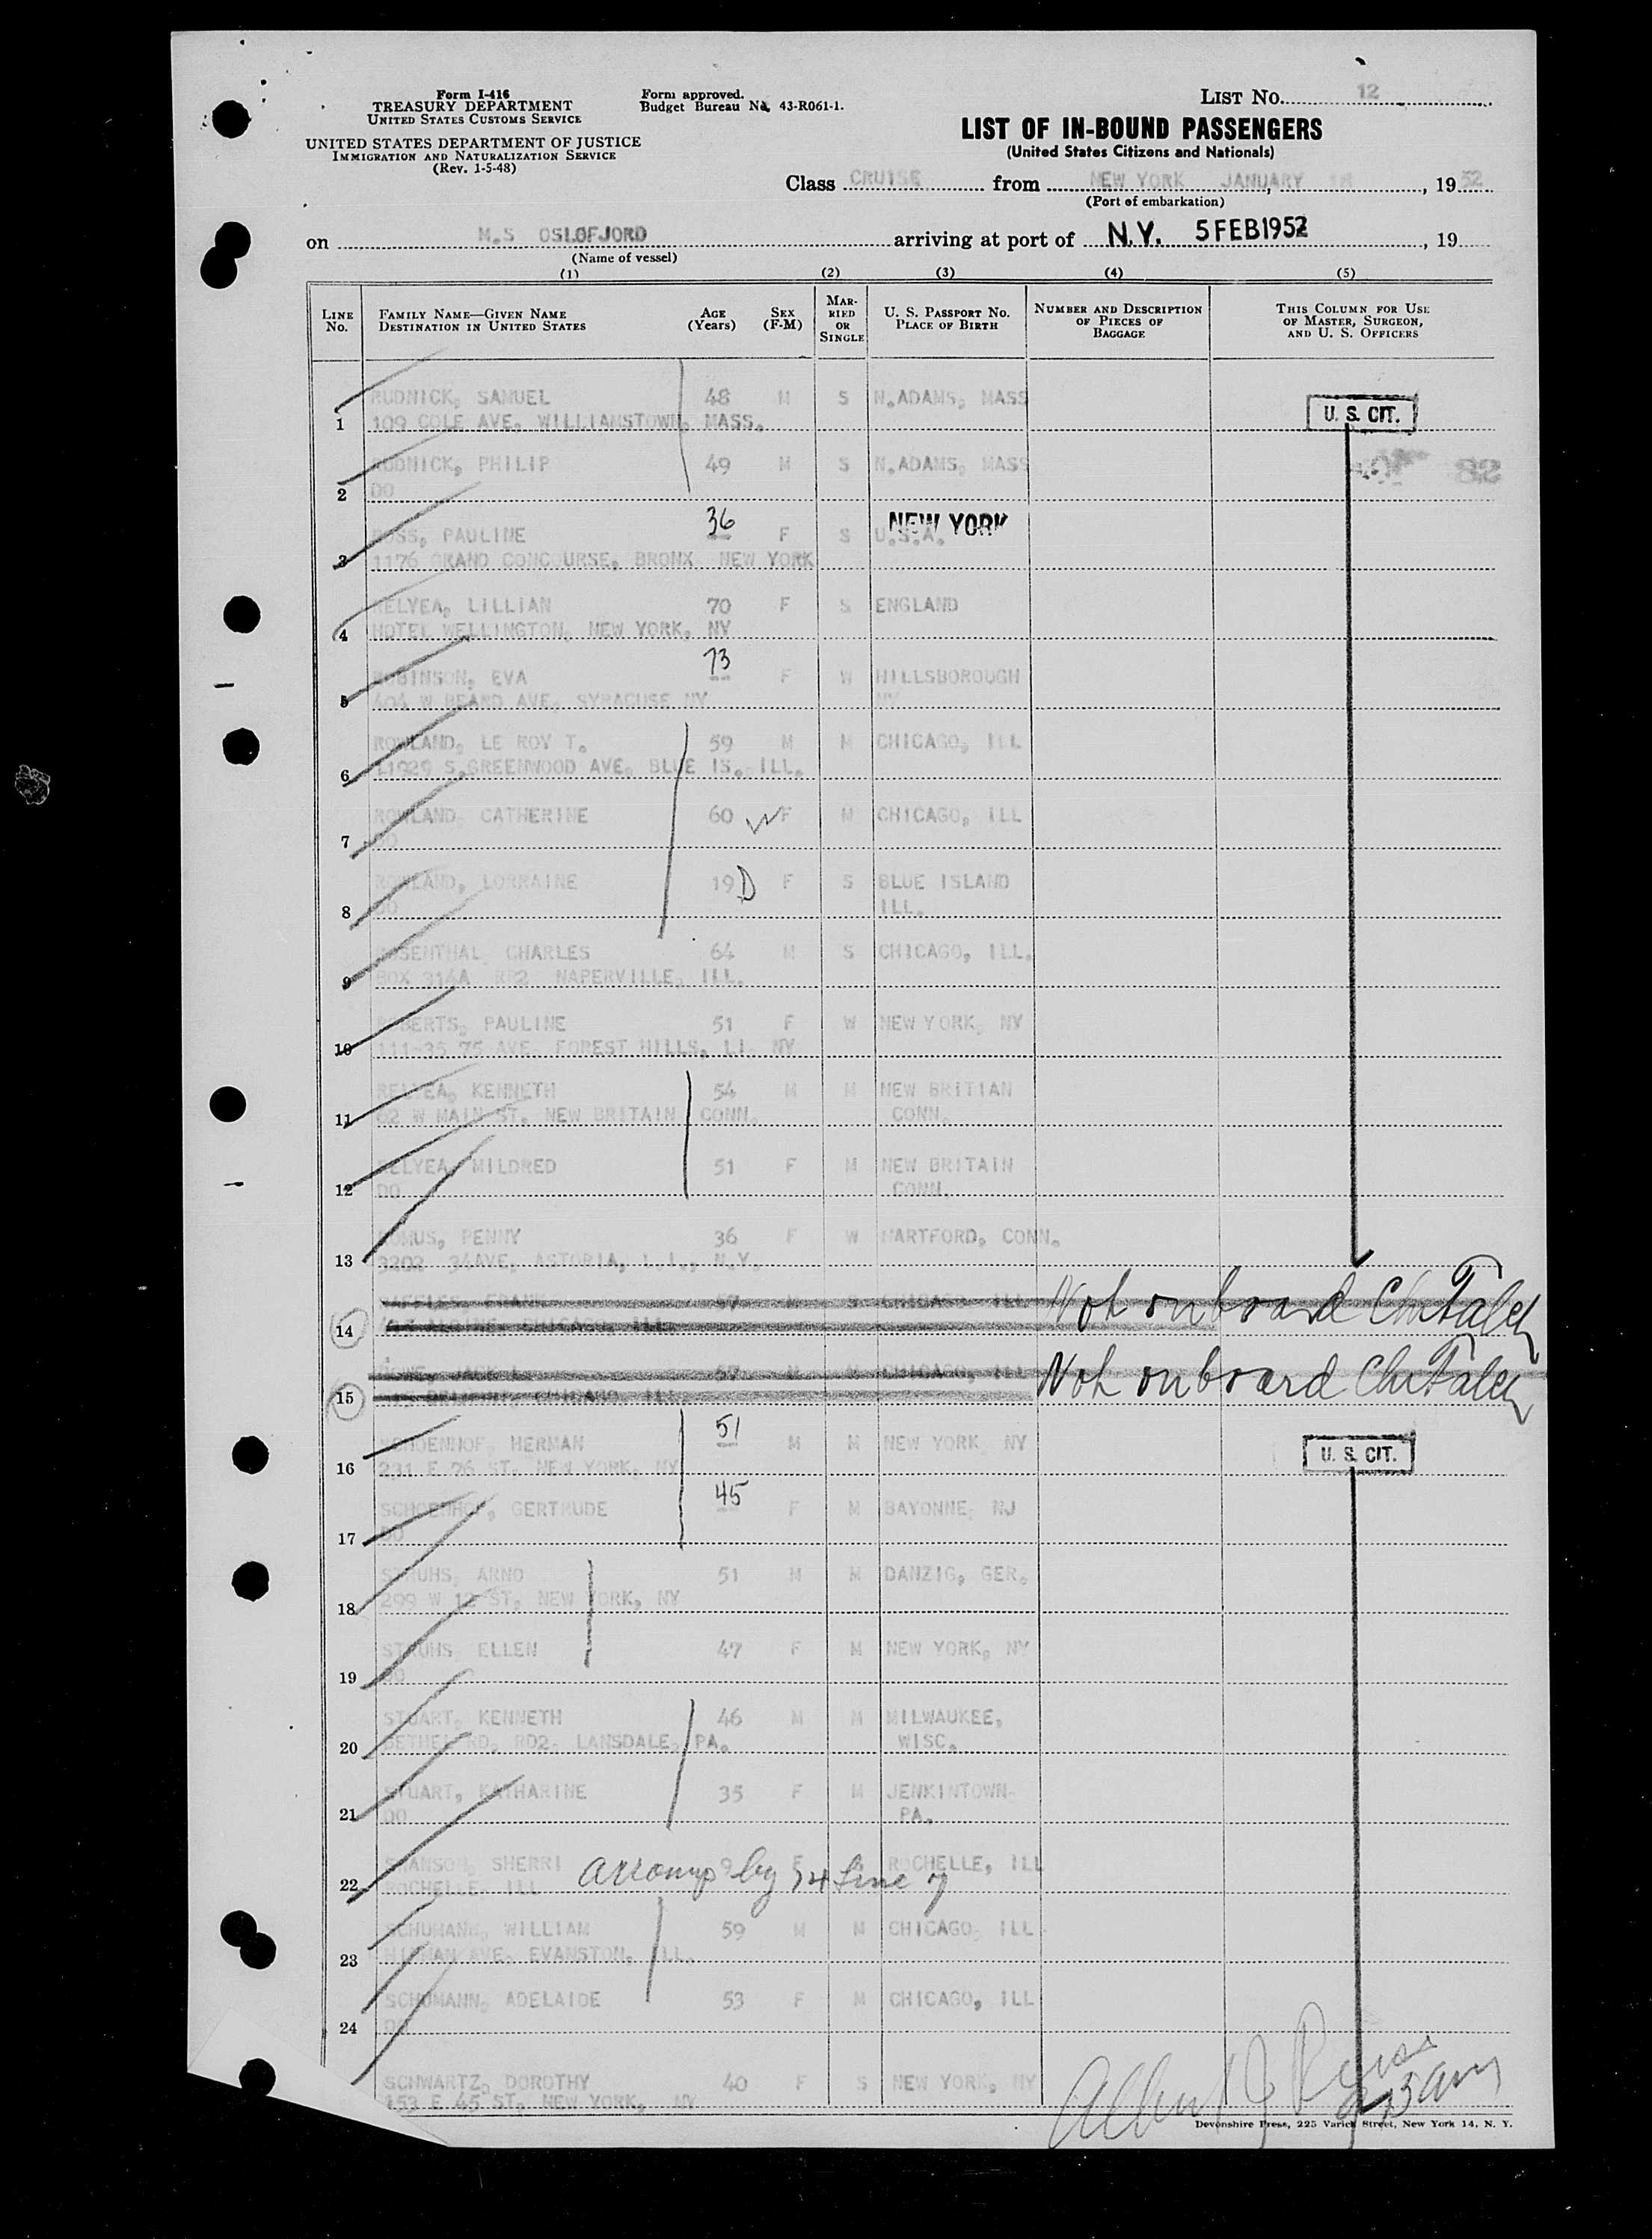 Form I-416
TREASURY DEPARTMENT
UNITED STATES CUSTOMS SERVICE
UNITED STATES DEPARTMENT OF JUSTICE
IMMIGRATION AND NATURALIZATION SERVICE
(Rev. 1-5-48)
Form approved.
Budget Bureau No. 43-R061-1.
LIST NO. 12
LIST OF IN-BOUND PASSENGERS
(United States Citizens and Nationals)
Class CRUISE from NEW YORK JANUARY 18, 1952
(Port of embarkation)
on M.S OSLOFJORD arriving at port of N.Y. 5 FEB 1952, 19
(Name of vessel)
(1) (2) (3) (4) (5)
LINE NO. FAMILY NAME—GIVEN NAME DESTINATION IN UNITED STATES AGE (Years) SEX (F-M) MARRIED OR SINGLE U. S. PASSPORT NO. PLACE OF BIRTH NUMBER AND DESCRIPTION OF PIECES OF BAGGAGE THIS COLUMN FOR USE OF MASTER, SURGEON, AND U. S. OFFICERS
RUDNICK, SAMUEL 48 M S N.ADAMS, MASS U. S. CIT.
1 109 COLE AVE. WILLIAMSTOWN, MASS.
RUDNICK, PHILIP 49 M S N.ADAMS, MASS
2 DO
ROSS, PAULINE 36 F S U.S.A. NEW YORK
3 1176 GRAND CONCOURSE, BRONX NEW YORK
RELYEA, LILLIAN 70 F S ENGLAND
4 HOTEL WELLINGTON, NEW YORK, NY
ROBINSON, EVA 73 F W HILLSBOROUGH
5 404 W BEARD AVE, SYRACUSE NY NY
ROWLAND, LE ROY T. 59 M M CHICAGO, ILL
6 11929 S.GREENWOOD AVE, BLUE IS., ILL.
ROWLAND, CATHERINE 60 F M CHICAGO, ILL
7 DO
ROWLAND, LORRAINE 19 D F S BLUE ISLAND
8 DO ILL.
ROSENTHAL, CHARLES 64 M S CHICAGO, ILL.
9 BOX 314A RR2 NAPERVILLE, ILL.
ROBERTS, PAULINE 51 F W NEW YORK, NY
10 111-35 75 AVE. FOREST HILLS, LI. NY
RELYEA, KENNETH 54 M M NEW BRITIAN
11 62 W MAIN ST. NEW BRITAIN CONN. CONN.
RELYEA, MILDRED 51 F M NEW BRITAIN
12 DO CONN.
PENNY 36 F W HARTFORD, CONN.
13 3202 34AVE, ASTORIA, L.I., N.Y.
FRANK 57 M S CHICAGO ILL Not onboard
14 CHICAGO, ILL.
JACK L 57 M CHICAGO, ILL Not onboard
15 CHICAGO, ILL.
SCHOENHOF, HERMAN 51 M M NEW YORK NY U. S. CIT.
16 231 E 76 ST, NEW YORK, NY
SCHOENHOF, GERTRUDE 45 F M BAYONNE, NJ
17 DO
STRUHS, ARNO 51 M M DANZIG, GER.
18 299 W 12 ST, NEW YORK, NY
STRUHS, ELLEN 47 F M NEW YORK, NY
19 DO
STUART, KENNETH 46 M M MILWAUKEE,
20 BETHEL RD, RD2, LANSDALE, PA. WISC.
STUART, KATHARINE 35 F M JENKINTOWN-
21 DO PA.
SWANSON, SHERRI 9 F ROCHELLE, ILL
22 ROCHELLE, ILL accomp by
SCHUMANN, WILLIAM 59 M M CHICAGO, ILL.
23 HINMAN AVE. EVANSTON, ILL.
SCHUMANN, ADELAIDE 53 F M CHICAGO, ILL
24 DO
SCHWARTZ, DOROTHY 40 F S NEW YORK, NY
153 E 45 ST, NEW YORK, NY
Devonshire Press, 225 Varick Street, New York 14, N. Y.